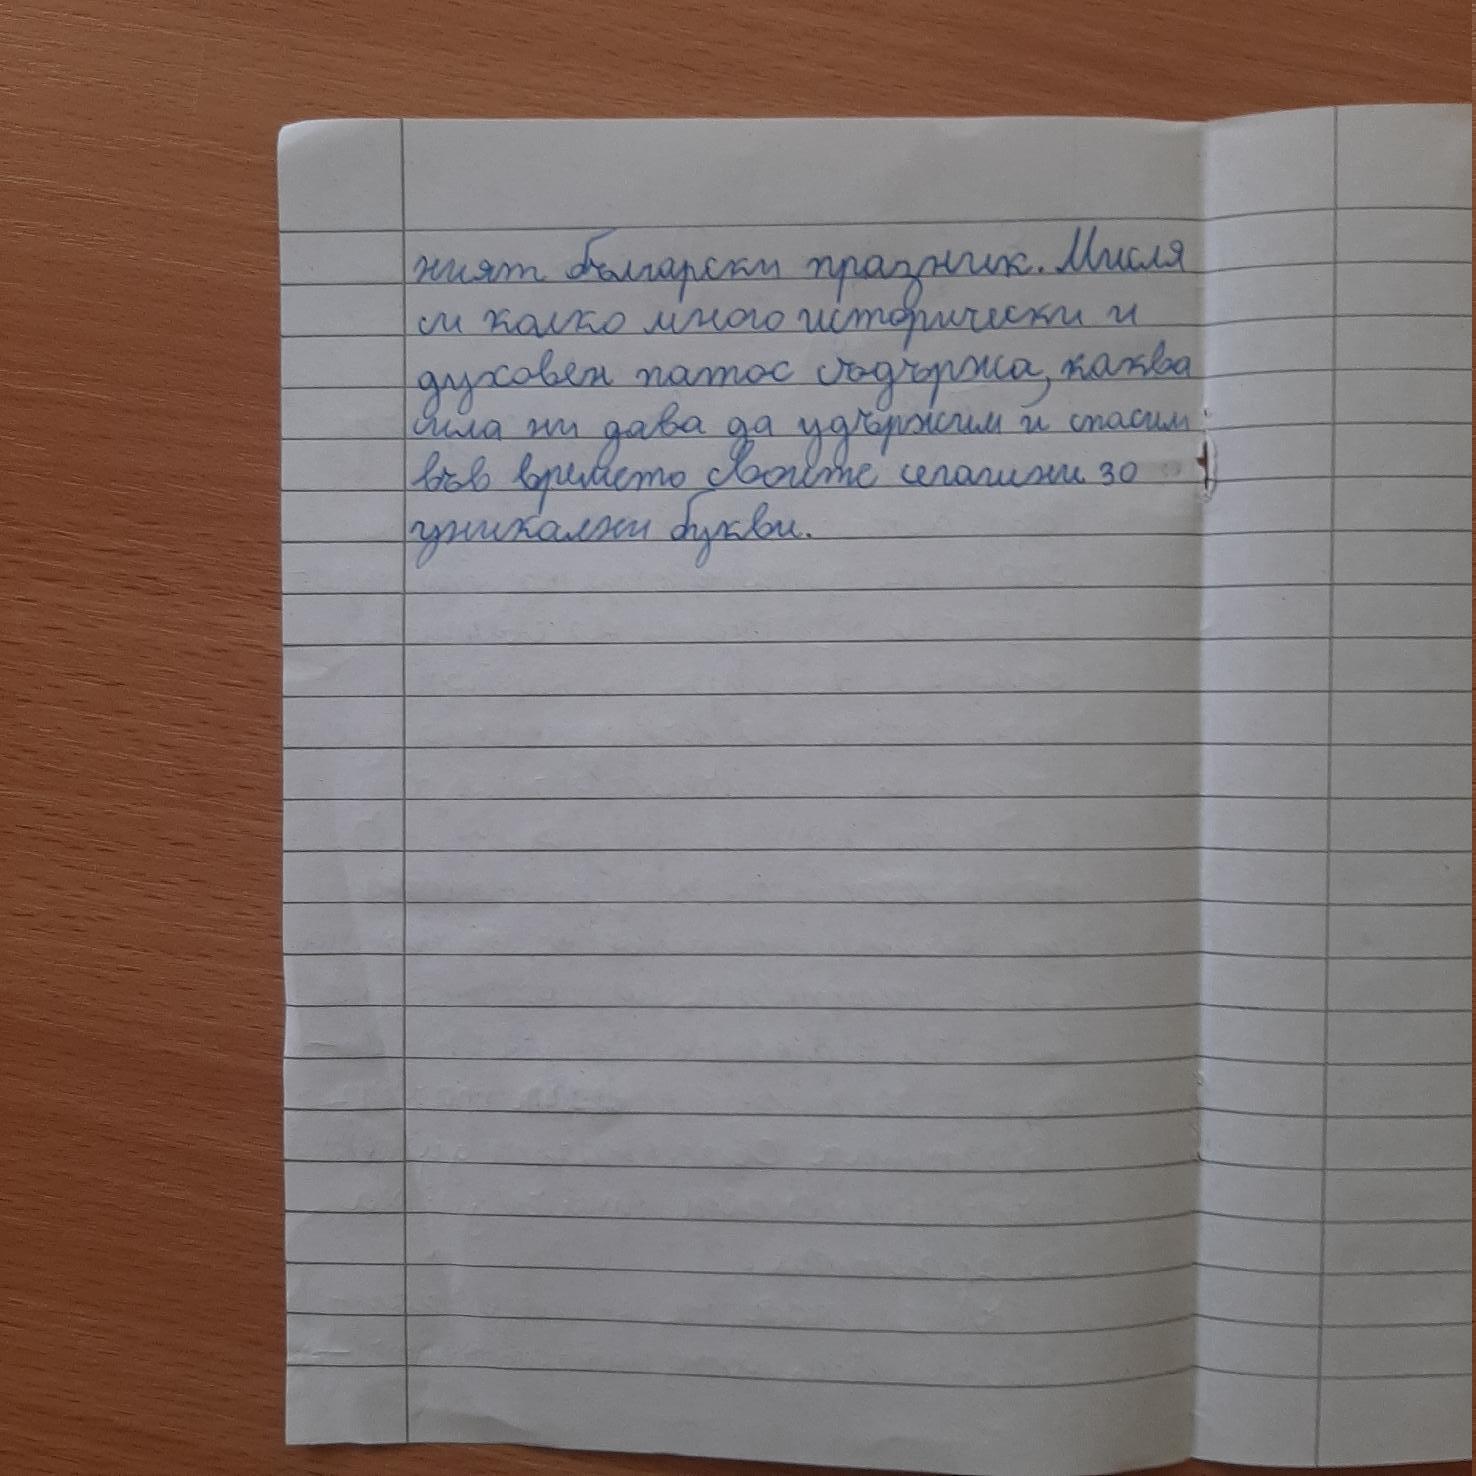 ният български празник. Мисля
си колко много исторически и
духовен патос съдържа, каква
сила ни дава да удържим и спасим
във времето своите сегашни 30
уникални букви.